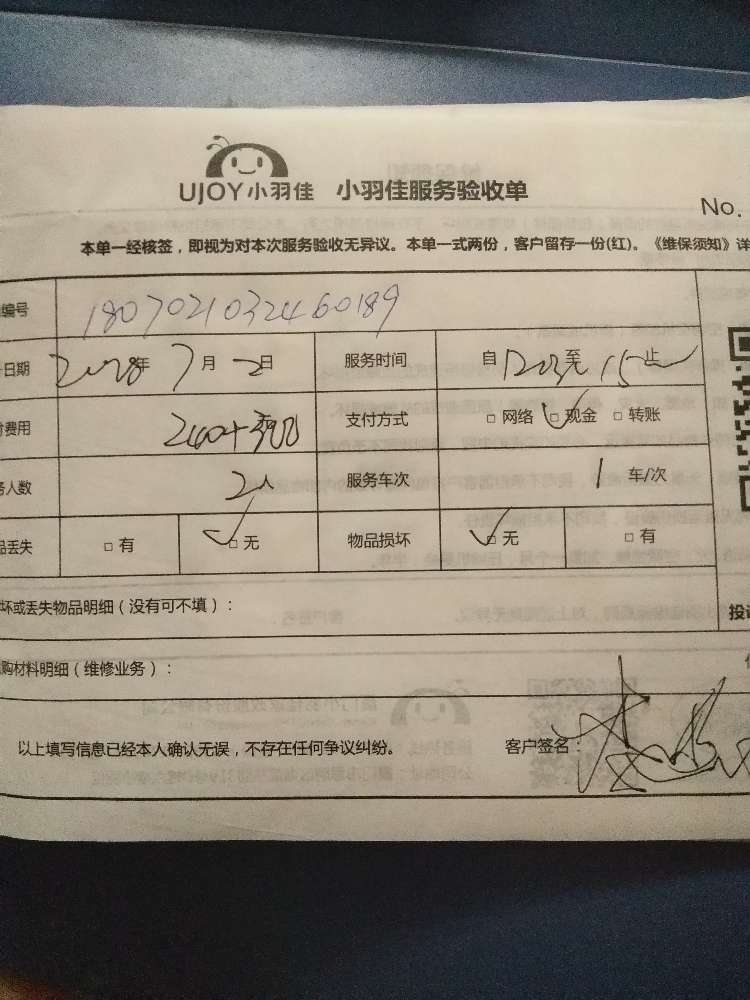 UJOY小羽佳 小羽佳服务验收单
No.
本单一经核签，即视为对本次服务验收无异议。本单一式两份，客户留存一份(红)。《维保须知》详
编号 1807021032460189
日期 2018年7月2日 服务时间 自 至15止
费用 支付方式 □网络 □现金 □转账
务人数 2人 服务车次 1车/次
品丢失 □有 □无 物品损坏 □无 □有
坏或丢失物品明细（没有可不填）：
投诉
购材料明细（维修业务）：
以上填写信息已经本人确认无误，不存在任何争议纠纷。 客户签名：